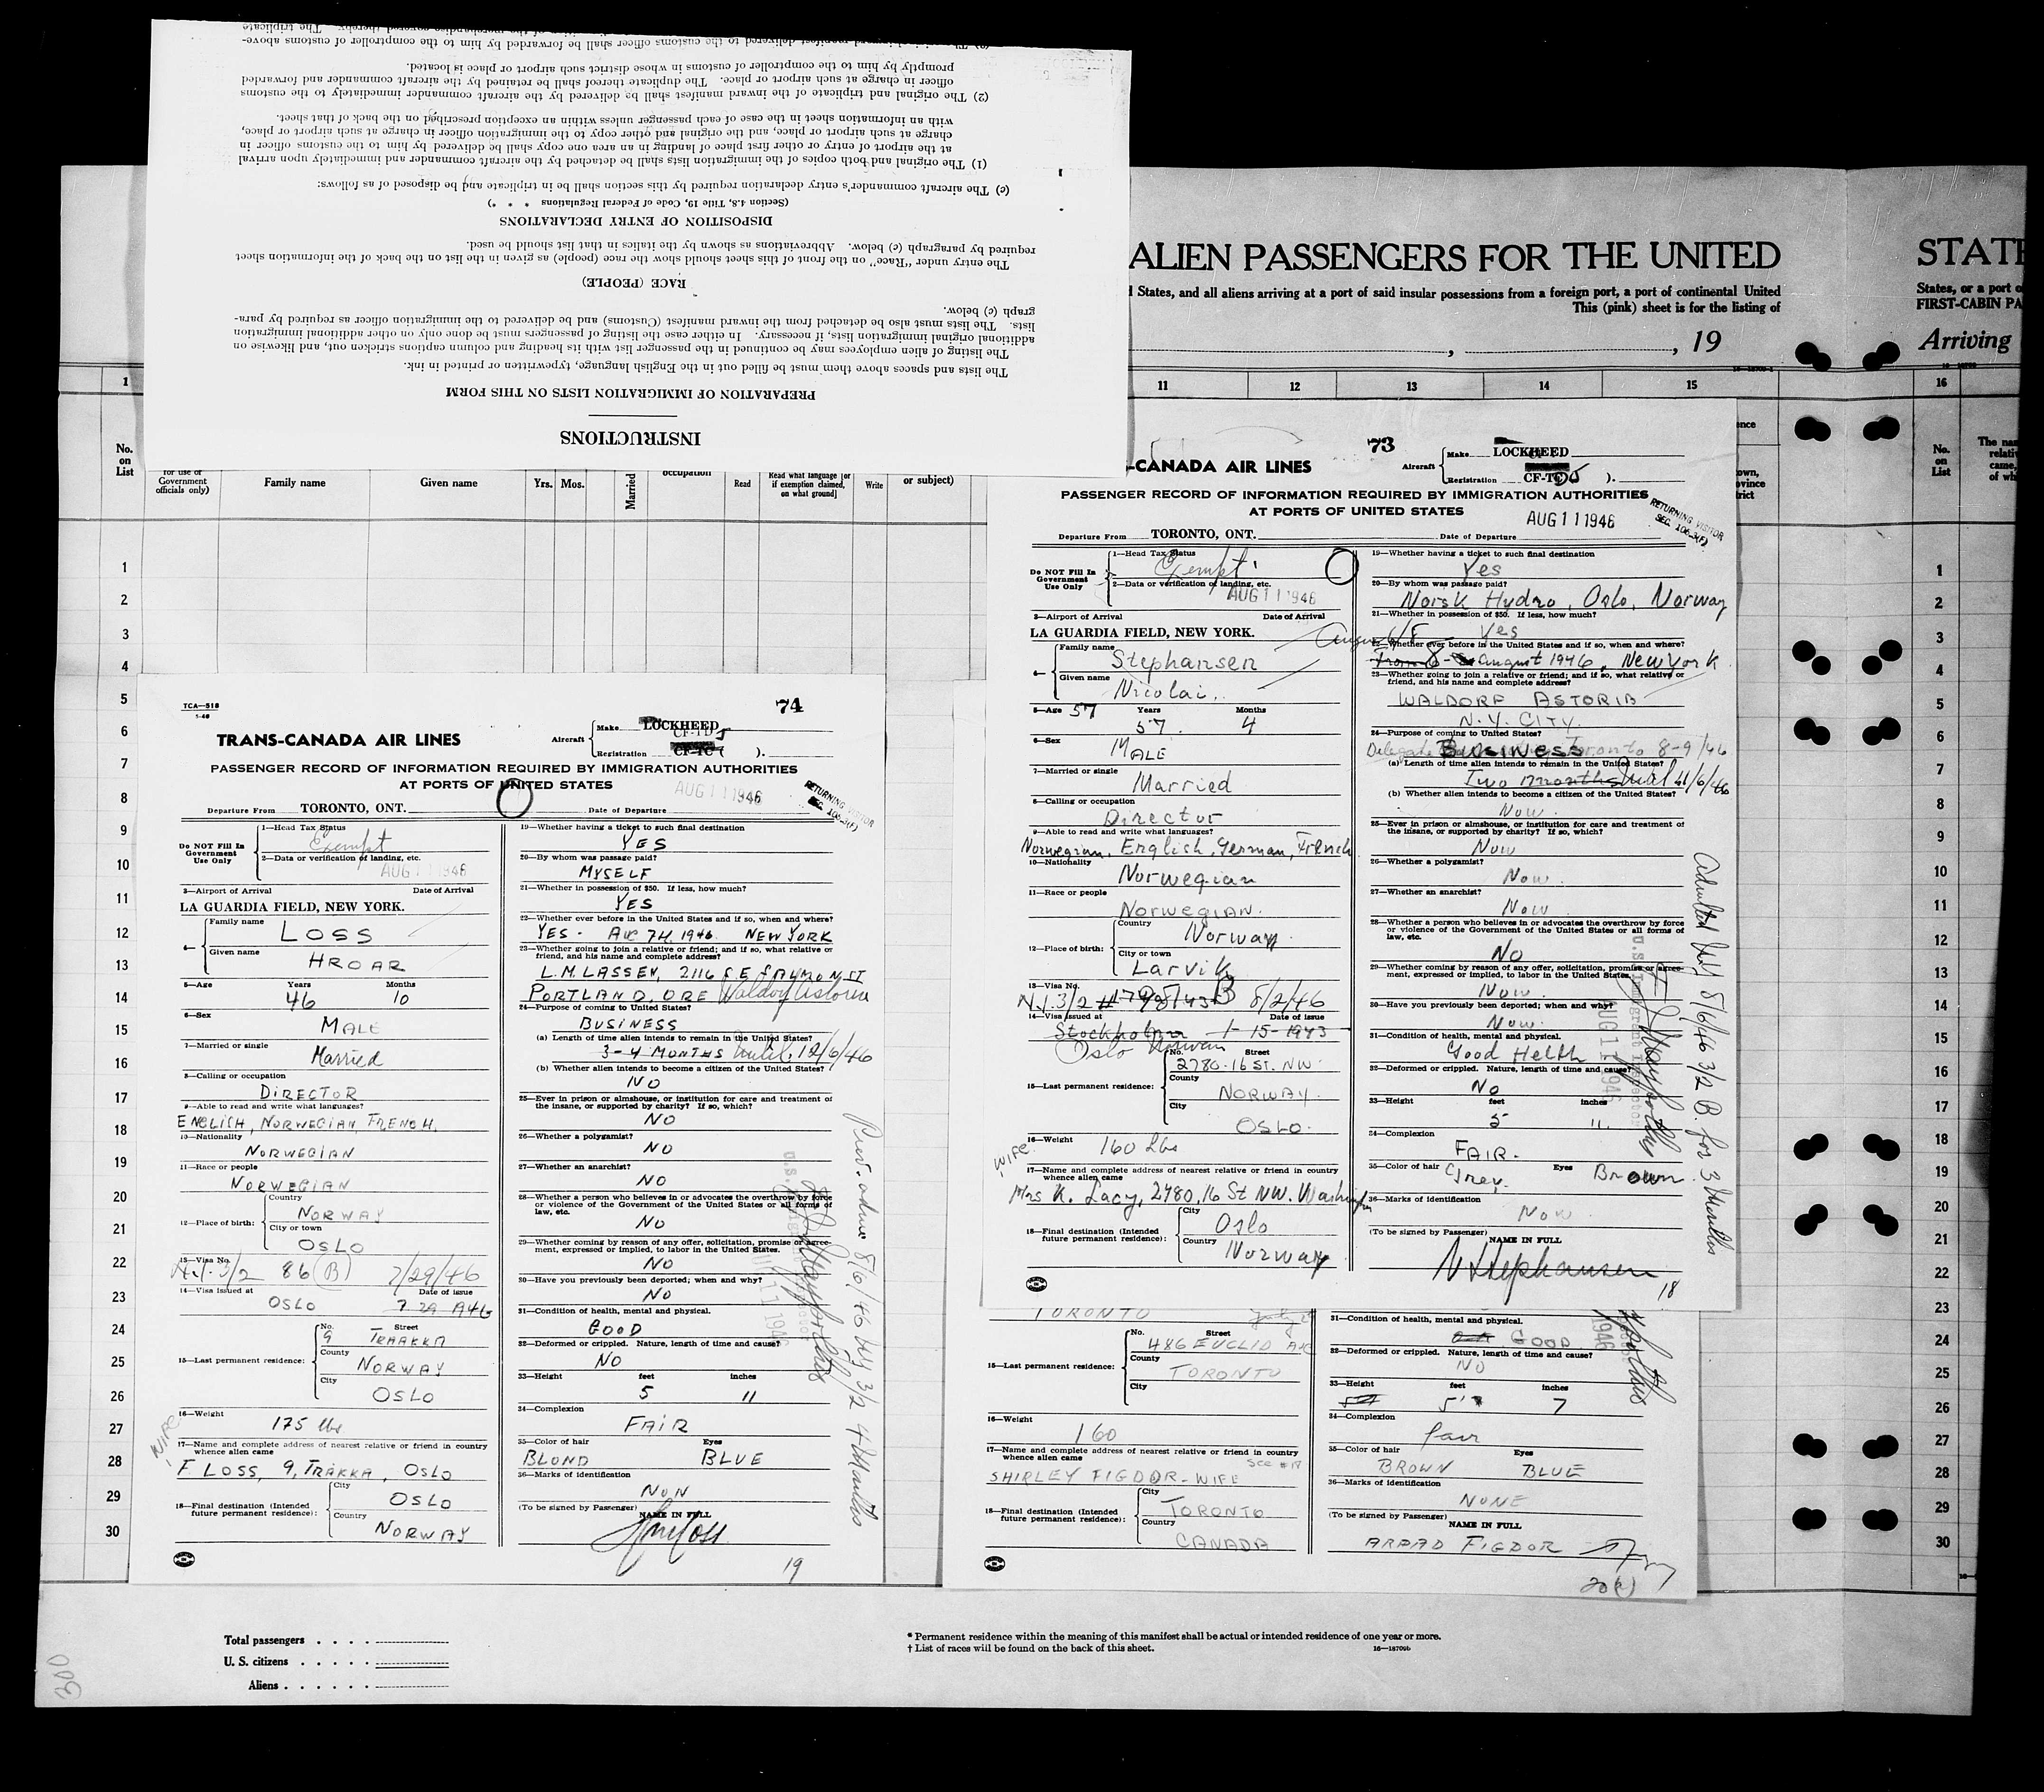 INSTRUCTIONS
PREPARATION OF IMMIGRATION LISTS ON THIS FORM
The lists and spaces above them must be filled out in the English language, typewritten or printed in ink.
The listing of alien employees may be continued in the passenger list with its heading and column captions stricken out, and likewise on
additional original immigration lists, if necessary. In either case the listing of passengers must be done only on other additional immigration
lists. The lists must also be detached from the inward manifest (Customs) and be delivered to the immigration officer as required by para-
graph (c) below.
RACE (PEOPLE)
The entry under "Race" on the front of this sheet should show the race (people) as given in the list on the back of the information sheet
required by paragraph (c) below. Abbreviations as shown by the italics in that list should be used.
DISPOSITION OF ENTRY DECLARATIONS
(Section 4.8, Title 19, Code of Federal Regulations * * *)
(c) The aircraft commander's entry declaration required by this section shall be in triplicate and be disposed of as follows:
(1) The original and both copies of the immigration lists shall be detached by the aircraft commander and immediately upon arrival
at the airport of entry or other first place of landing in an area one copy shall be delivered by him to the customs officer in
charge at such airport or place, and the original and other copy to the immigration officer in charge at such airport or place,
with an information sheet in the case of each passenger unless within an exception prescribed on the back of that sheet.
(2) The original and triplicate of the inward manifest shall be delivered by the aircraft commander immediately to the customs
officer in charge at such airport or place. The duplicate thereof shall be retained by the aircraft commander and forwarded
promptly by him to the comptroller of customs in whose district such airport or place is located.
manifest delivered to the customs officer shall be forwarded by him to the comptroller of customs above-
The triplicate
ALIEN PASSENGERS FOR THE UNITED
States, and all aliens arriving at a port of said insular possessions from a foreign port, a port of continental United
This (pink) sheet is for the listing of
, 19
STATE
States, or a port o
FIRST-CABIN PA
Arriving
1 11 12 13 14 15 16
No. on List
for use of Government officials only)
Family name
Given name
Yrs. Mos.
Married
occupation
Read
Read what language [or if exemption claimed, on what ground]
Write
or subject)
No. on List
1
2
3
4
5
6
7
8
9
10
11
12
13
14
15
16
17
18
19
20
21
22
23
24
25
26
27
28
29
30
73
-CANADA AIR LINES
Aircraft
Make LOCKHEED
Registration CF-TC ).
PASSENGER RECORD OF INFORMATION REQUIRED BY IMMIGRATION AUTHORITIES
AT PORTS OF UNITED STATES
AUG 11 1946
RETURNING VISITOR
SEC. 106.3(F)
Departure From TORONTO, ONT. Date of Departure
Do NOT Fill In Government Use Only
1—Head Tax Status
Exempt
2—Data or verification of landing, etc.
AUG 11 1946
3—Airport of Arrival Date of Arrival
LA GUARDIA FIELD, NEW YORK.
4— Family name Stephansen
Given name Nicolai
5—Age 57 Years 57 Months 4
6—Sex MALE
7—Married or single Married
8—Calling or occupation Director
9—Able to read and write what languages?
Norwegian, English, German, French
10—Nationality Norwegian
11—Race or people NORWEGIAN.
12—Place of birth: Country Norway
City or town Larvik
13—Visa No. N.I. 3/2 B 8/2/46
14—Visa issued at Date of issue
Stockholm 1-15-1943
Oslo Norway
15—Last permanent residence: No. Street
2780-16 ST. NW.
County NORWAY.
City OSLO.
16—Weight 160 Lbs
WIFE
17—Name and complete address of nearest relative or friend in country
whence alien came
Mrs K. Lacy, 2780, 16 St NW. Washington
18—Final destination (Intended future permanent residence): City Oslo
Country Norway
19—Whether having a ticket to such final destination
Yes
20—By whom was passage paid?
Norsk Hydro, Oslo, Norway
21—Whether in possession of $50. If less, how much?
Yes
22—Whether ever before in the United States and if so, when and where?
August 1946, New York
23—Whether going to join a relative or friend; and if so, what relative or
friend, and his name and complete address?
WALDORF ASTORIA
N.Y. CITY.
24—Purpose of coming to United States?
BUSINESS Toronto 8-9/46
(a) Length of time alien intends to remain in the United States?
Two months until 11/6/46
(b) Whether alien intends to become a citizen of the United States?
Now.
25—Ever in prison or almshouse, or institution for care and treatment of
the insane, or supported by charity? If so, which?
Now
26—Whether a polygamist?
Now.
27—Whether an anarchist?
Now
28—Whether a person who believes in or advocates the overthrow by force
or violence of the Government of the United States or all forms of
law, etc.
No
29—Whether coming by reason of any offer, solicitation, promise or agree-
ment, expressed or implied, to labor in the United States.
Now.
30—Have you previously been deported; when and why?
Now.
31—Condition of health, mental and physical.
Good Helth
32—Deformed or crippled. Nature, length of time and cause?
No
33—Height feet inches
5 11.
34—Complexion
FAIR.
35—Color of hair Grey. Eyes Brown
36—Marks of identification
Now
(To be signed by Passenger)
NAME IN FULL
N Stephansen
18
U.S. Immigrant Inspector
AUG 11 1946
Admitted 8/6/46 3/2 B for 3 Months
TCA—518
1-46
74
TRANS-CANADA AIR LINES
Aircraft
Make LOCKHEED
Registration CF-TC ( ).
PASSENGER RECORD OF INFORMATION REQUIRED BY IMMIGRATION AUTHORITIES
AT PORTS OF UNITED STATES
AUG 11 1946
RETURNING VISITOR
SEC. 106.3(F)
Departure From TORONTO, ONT. Date of Departure
Do NOT Fill In Government Use Only
1—Head Tax Status
Exempt
2—Data or verification of landing, etc.
AUG 11 1946
3—Airport of Arrival Date of Arrival
LA GUARDIA FIELD, NEW YORK.
4— Family name LOSS
Given name HROAR
5—Age Years 46 Months 10
6—Sex MALE
7—Married or single Married
8—Calling or occupation DIRECTOR
9—Able to read and write what languages?
ENGLISH, NORWEGIAN, FRENCH.
10—Nationality NORWEGIAN
11—Race or people NORWEGIAN
12—Place of birth: Country NORWAY
City or town OSLO
13—Visa No. N.I. 3/2 86 (B) 7/29/46
14—Visa issued at OSLO Date of issue 7 29 1946
15—Last permanent residence: No. 9 Street TRAKKA
County NORWAY
City OSLO
16—Weight 175 lbs
WIFE
17—Name and complete address of nearest relative or friend in country
whence alien came
F LOSS, 9, TRAKKA, OSLO
18—Final destination (Intended future permanent residence): City OSLO
Country NORWAY
19—Whether having a ticket to such final destination
YES
20—By whom was passage paid?
MYSELF
21—Whether in possession of $50. If less, how much?
YES
22—Whether ever before in the United States and if so, when and where?
YES - AUG 7th 1946 NEW YORK
23—Whether going to join a relative or friend; and if so, what relative or
friend, and his name and complete address?
L. M. LASSEN, 2116 S.E. SALMON ST
PORTLAND. ORE Waldorf Astoria
24—Purpose of coming to United States?
BUSINESS
(a) Length of time alien intends to remain in the United States?
3-4 MONTHS Until 12/6/46
(b) Whether alien intends to become a citizen of the United States?
NO
25—Ever in prison or almshouse, or institution for care and treatment of
the insane, or supported by charity? If so, which?
NO
26—Whether a polygamist?
NO
27—Whether an anarchist?
NO
28—Whether a person who believes in or advocates the overthrow by force
or violence of the Government of the United States or all forms of
law, etc.
NO
29—Whether coming by reason of any offer, solicitation, promise or agree-
ment, expressed or implied, to labor in the United States.
NO
30—Have you previously been deported; when and why?
NO
31—Condition of health, mental and physical.
GOOD
32—Deformed or crippled. Nature, length of time and cause?
NO
33—Height feet inches
5 11
34—Complexion
FAIR
35—Color of hair BLOND Eyes BLUE
36—Marks of identification
NON
(To be signed by Passenger)
NAME IN FULL
19
Prev. adm. 8/6/46 3/2 4 Months
TORONTO
15—Last permanent residence: No. Street
486 EUCLID AVE
County TORONTO
City
16—Weight 160
17—Name and complete address of nearest relative or friend in country
whence alien came
See #18
SHIRLEY FIGDOR - WIFE
18—Final destination (Intended future permanent residence): City TORONTO
Country CANADA
31—Condition of health, mental and physical.
GOOD
32—Deformed or crippled. Nature, length of time and cause?
NO
33—Height feet inches
5' 7
34—Complexion
fair
35—Color of hair BROWN Eyes BLUE
36—Marks of identification
NONE
(To be signed by Passenger)
NAME IN FULL
ARPAD FIGDOR
Total passengers
U. S. citizens
Aliens
* Permanent residence within the meaning of this manifest shall be actual or intended residence of one year or more.
† List of races will be found on the back of this sheet.
300